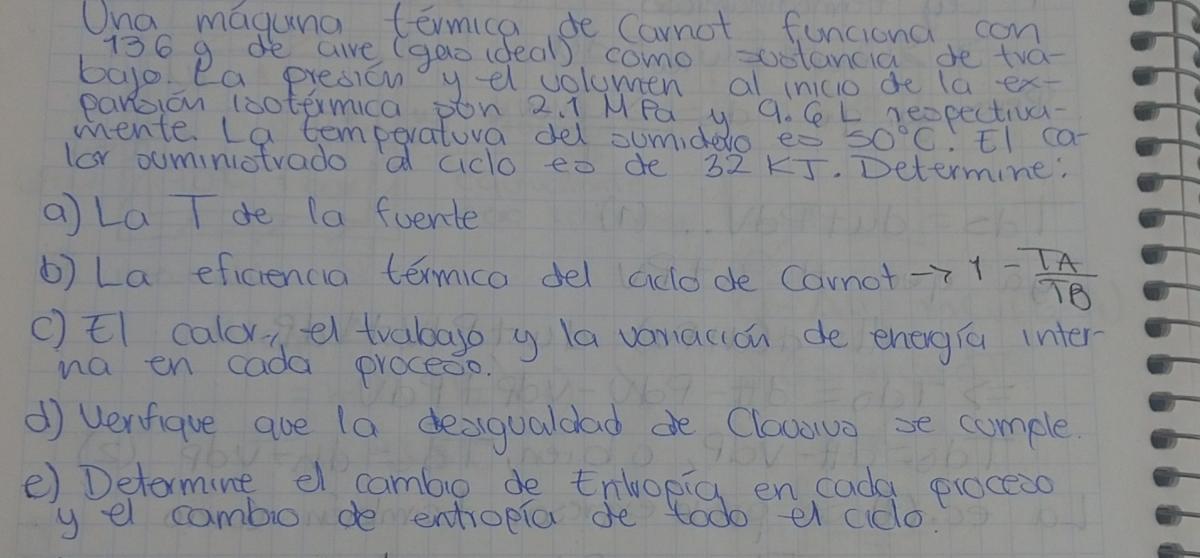 Una máquina térmica de Carnot funciona con
136 g de aire (gas ideal) como sustancia de tra-
bajo. La presión y el volumen al inicio de la ex-
pansión isotérmica son 2.1 MPa y 9.6 L respectiva-
mente. La temperatura del sumidero es 50°C. El ca-
lor suministrado al ciclo es de 32 KJ. Determine:
a) La T de la fuente
b) La eficiencia térmica del ciclo de Carnot → 1 - TA/TB
c) El calor, el trabajo y la variación de energía inter-
na en cada proceso.
d) Verifique que la desigualdad de Clausius se cumple.
e) Determine el cambio de Entropía en cada proceso
y el cambio de entropía de todo el ciclo.